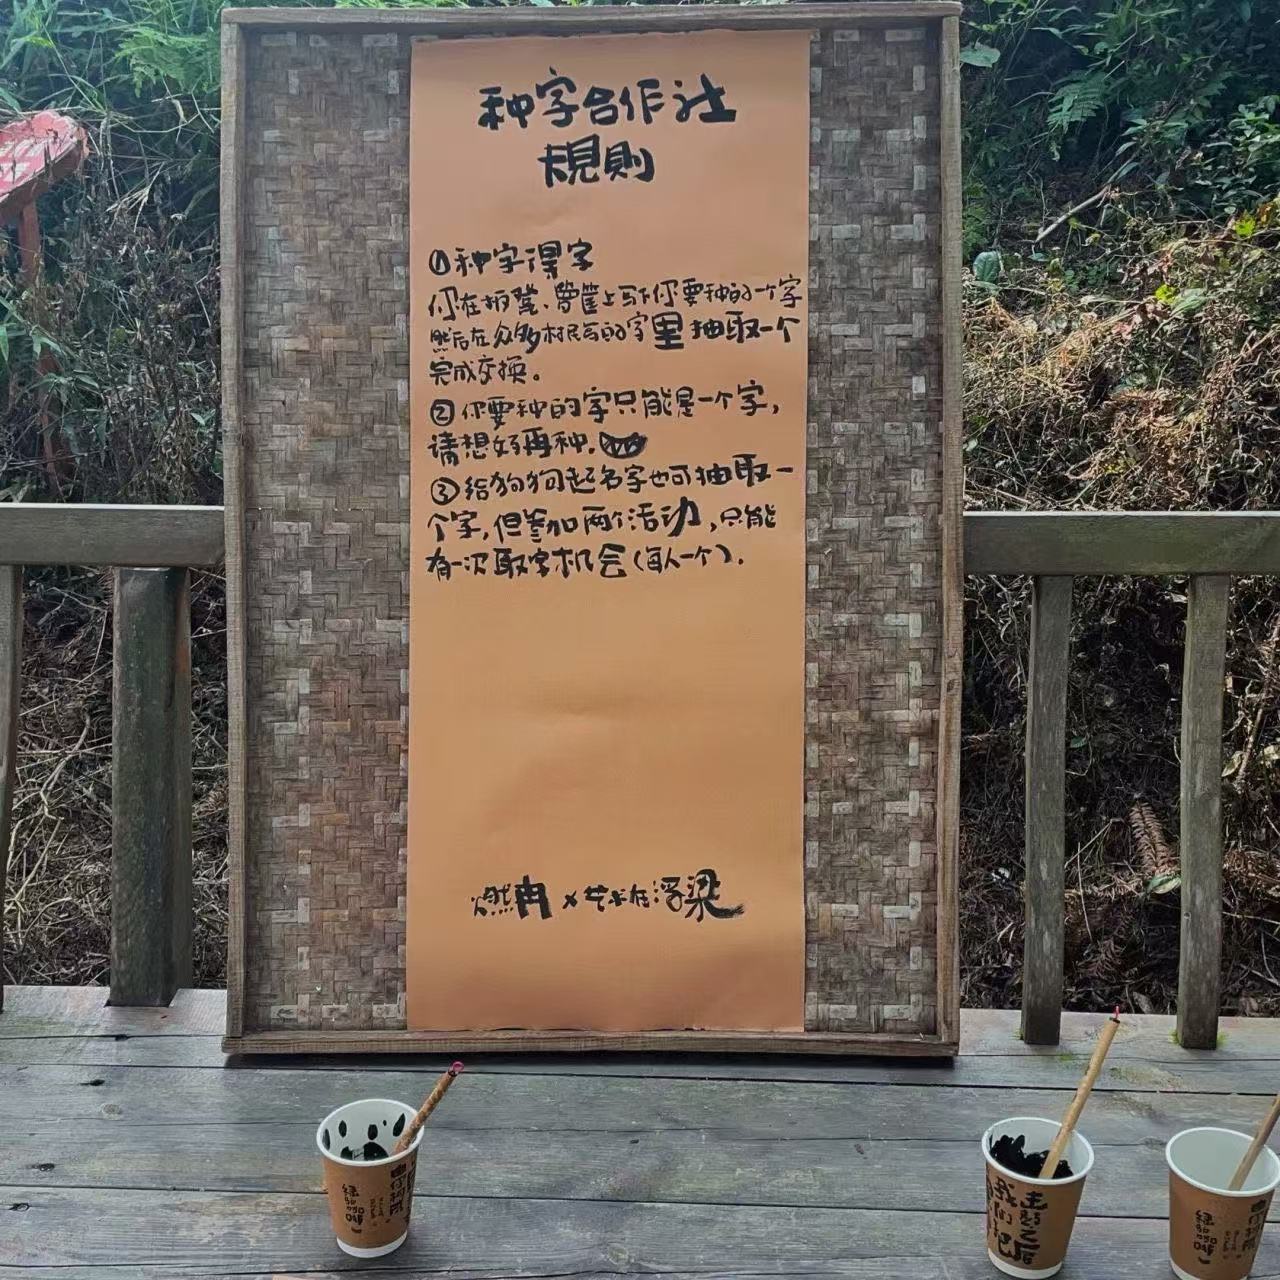 种字合作社
規則
①种字得字
你在板凳、箩筐上写下你要种的一个字
然后在众多村民写的字里抽取一个
完成交换。
②你要种的字只能是一个字,
请想好再种.
③给狗狗起名字也可抽取一
个字,但参加两个活动,只能
有一次取字机会(每人一个).
燃冉×艺术在浮梁